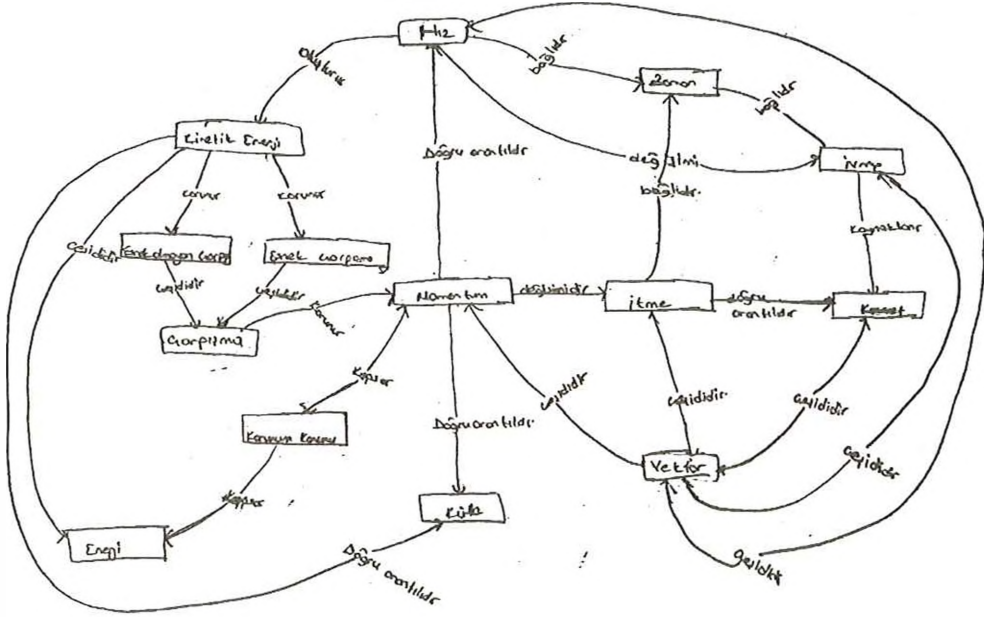 Hız
Oluşturur
bağlıdır
Zaman
bağlıdır
Kinetik Enerji
Doğru orantılıdır
değişimi
İvme
bağlıdır.
korunur
korunur
kaynaklanır
çeşididir
Esnek olmayan Çarpış
Esnek Çarpışma
çeşididir
çeşididir
Momentum
değişimidir
İtme
doğru
orantılıdır
Kuvvet
Korunur
Çarpışma
Kapsar
çeşididir
çeşididir
çeşididir
Korunum Kanunu
Doğru orantılıdır.
çeşididir
Vektör
Kapsar
Kütle
Enerji
Doğru
orantılıdır
çeşididir